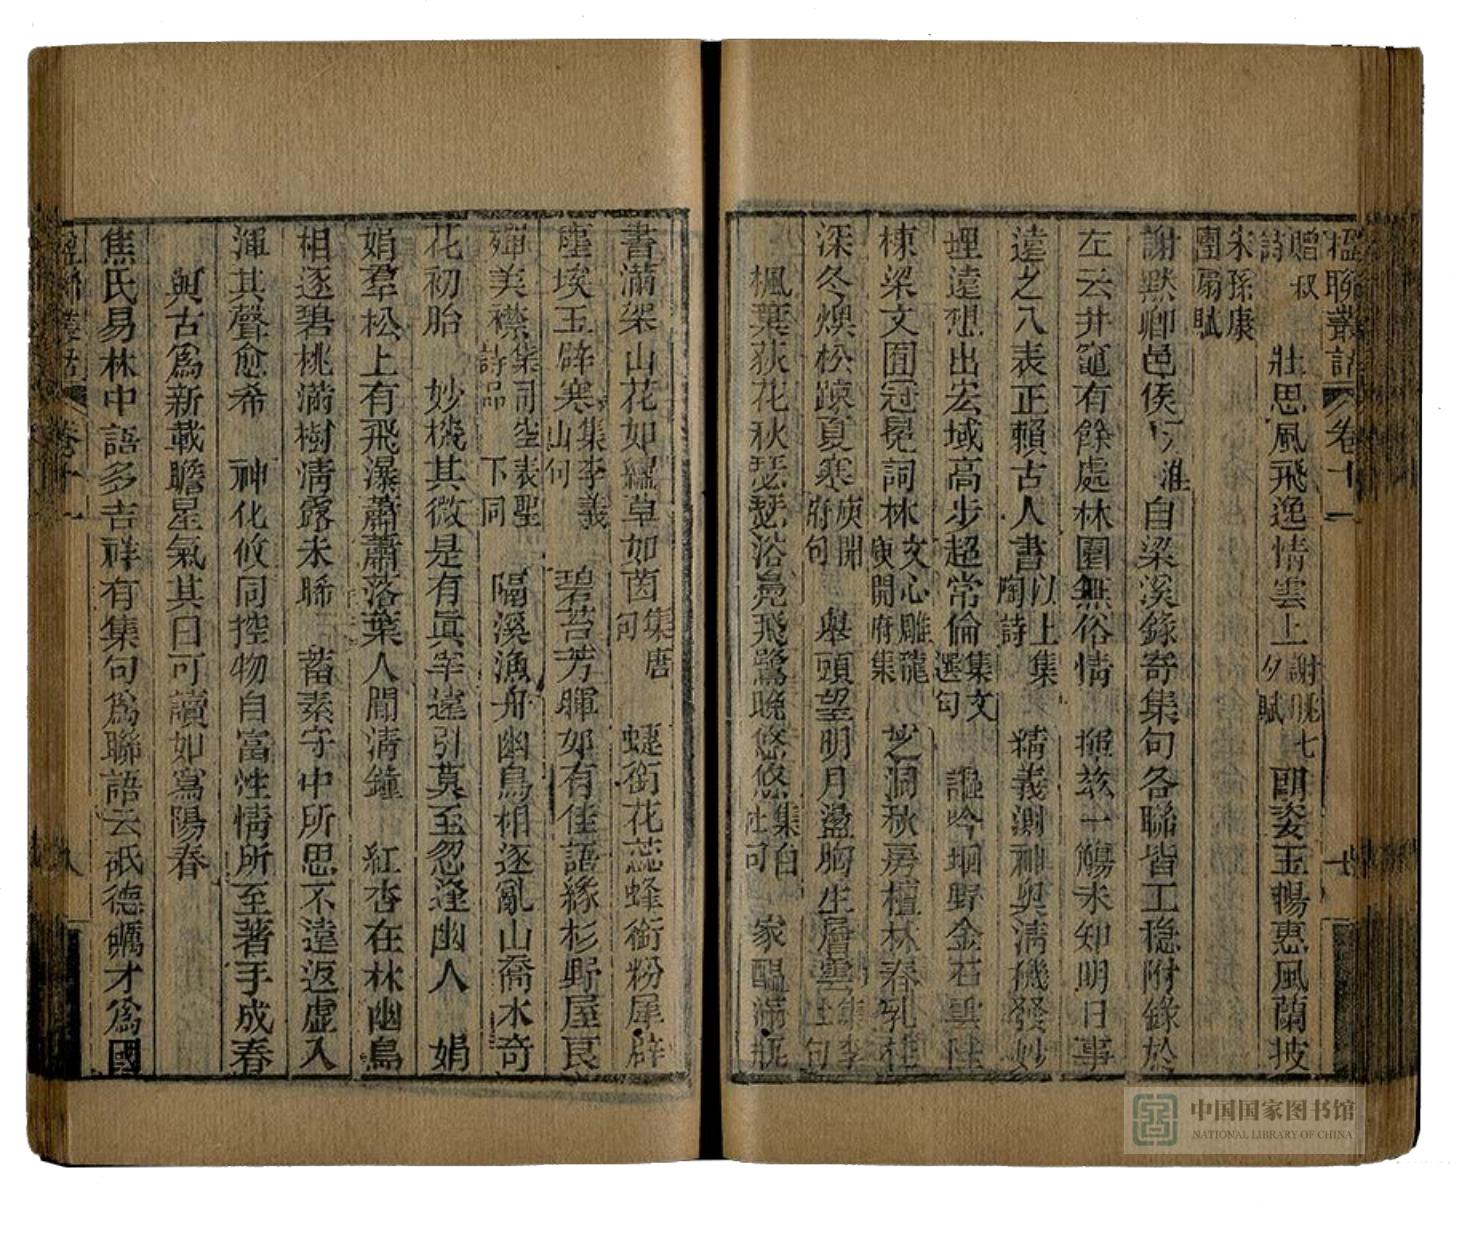 楹聯叢話 卷十一
贈叔詩 壯思風飛逸情雲上 謝朓七夕賦 玉暢惠風蘭披
宋孫康團扇賦
謝默卿邑侯淮自梁溪錄寄集句各聯皆工穩附錄於
左云井竈有餘處林園無俗情 揮茲一觴未知明日事
遠之八表正賴古人書 以上集陶詩 精義測神奧清機發妙
理遠想出宏域高步超常倫 集文選句 謳吟坰野金石雲陛
棟梁文囿冠冕詞林 文心雕龍庾開府集 芝洞秋房檀林春乳
深冬燠松疎夏寒 庾開府句 舉頭望明月盪胸生層雲 集李杜句
楓葉荻花秋瑟瑟浴鳧飛鷺晚悠悠 集白杜句 家醞滿瓶
書滿架山花如繡草如茵 集唐句 蜨銜花蕊蜂銜粉犀辟
塵埃玉辟寒 集李義山句 碧苔芳暉如有佳語綠杉野屋良
殫美襟 集司空表聖詩品下同 隔溪漁舟幽鳥相逐亂山喬木奇
花初胎 妙機其微是有眞宰遠引莫至忽逢幽人 娟
娟羣松上有飛瀑蕭蕭落葉人聞清鐘 紅杏在林幽鳥
相逐碧桃滿樹清露未晞 蓄素守中所思不遠返虛入
渾其聲愈希 神化攸同控物自富性情所至著手成春
與古爲新載瞻星氣其曰可讀如寫陽春
焦氏易林中語多吉祥有集句爲聯語云祇德礪才爲國
卷十一